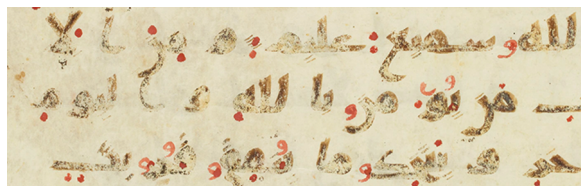 لله سميع عليم ومن الا
ب من يومن بالله واليوم
خر ويتخذ ما ينفق قربت